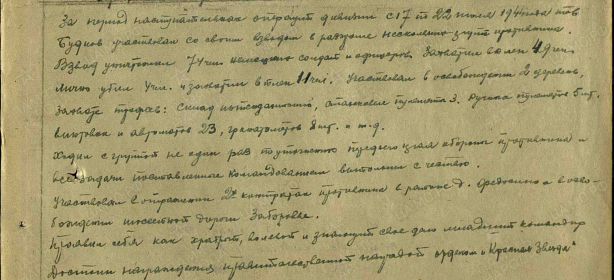 За период наступательных операций дивизии с 17 по 22 июля 194 года тов
Буднов участвовал со своим взводом в разгроме нескольких групп противника.
Взвод уничтожил 74 чел немецких солдат и офицеров. Захватил в плен 4
лично убил 4 чел. и захватили в плен 11 чел. Участвовал в освобождении 2 деревень,
захвате трофей: склад интенданский, станковых пулемета 3. Ручных пулеметов 5 шт.
винтовок и автоматов 23, гранатометов 8 шт. и т.д.
Ходил с группой не один раз по уточнению переднего края обороны противника и
все задачи поставленные командованием выполнил с честью.
Участвовал в отражении 2х контратак противника в районе д. и в осво-
бождении шоссейной дороги Заборовье.
Проявил себя как храбрый, волевой и знающий свое дело младший командир
Достоин награждения правительственной наградой орденом "Красная Звезда"